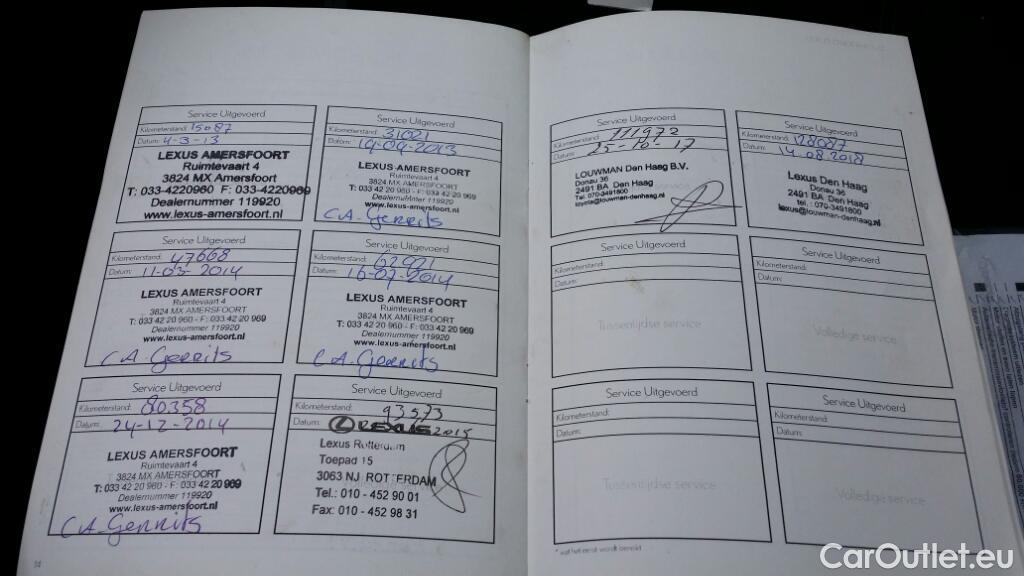 Service Uitgevoerd
Kilometerstand: 15087
Datum: 4-3-13
LEXUS AMERSFOORT
Ruimtevaart 4
3824 MX Amersfoort
T: 033-4220960 F: 033-4220969
Dealernummer 119920
www.lexus-amersfoort.nl
Service Uitgevoerd
Kilometerstand: 31021
Datum: 19-09-2013
LEXUS AMERSFOORT
Ruimtevaart 4
3824 MX AMERSFOORT
T: 033 42 20 960 - F: 033 42 20 969
Dealernummer 119920
www.lexus-amersfoort.nl
C.A. Gerrits
Service Uitgevoerd
Kilometerstand: 47668
Datum: 11-03-2014
LEXUS AMERSFOORT
Ruimtevaart 4
3824 MX AMERSFOORT
T: 033 42 20 960 - F: 033 42 20 969
Dealernummer 119920
www.lexus-amersfoort.nl
C.A. Gerrits
Service Uitgevoerd
Kilometerstand: 62921
Datum: 16-07-2014
LEXUS AMERSFOORT
Ruimtevaart 4
3824 MX AMERSFOORT
T: 033 42 20 960 - F: 033 42 20 969
Dealernummer 119920
www.lexus-amersfoort.nl
C.A. Gerrits
Service Uitgevoerd
Kilometerstand: 80358
Datum: 24-12-2014
LEXUS AMERSFOORT
Ruimtevaart 4
3824 MX AMERSFOORT
T: 033 42 20 960 - F: 033 42 20 969
Dealernummer 119920
www.lexus-amersfoort.nl
C.A. Gerrits
Service Uitgevoerd
Kilometerstand: 93573
Datum: LEXUS 2015
Lexus Rotterdam
Toepad 15
3063 NJ ROTTERDAM
Tel.: 010 - 452 90 01
Fax: 010 - 452 98 31
Service Uitgevoerd
Kilometerstand: 111972
Datum: 25-10-17
LOUWMAN Den Haag B.V.
Donau 36
2491 BA Den Haag
Tel: 070-3491800
toyota@louwman-denhaag.nl
Service Uitgevoerd
Kilometerstand: 128087
Datum: 14.08.2018
Lexus Den Haag
Donau 36
2491 BA Den Haag
tel.: 070-3491800
lexus@louwman-denhaag.nl
Service Uitgevoerd
Kilometerstand:
Datum:
Tussentijdse service
Service Uitgevoerd
Kilometerstand:
Datum:
Volledige service
Service Uitgevoerd
Kilometerstand:
Datum:
Tussentijdse service
Service Uitgevoerd
Kilometerstand:
Datum:
Volledige service
* wat het eerst wordt bereikt
CarOutlet.eu